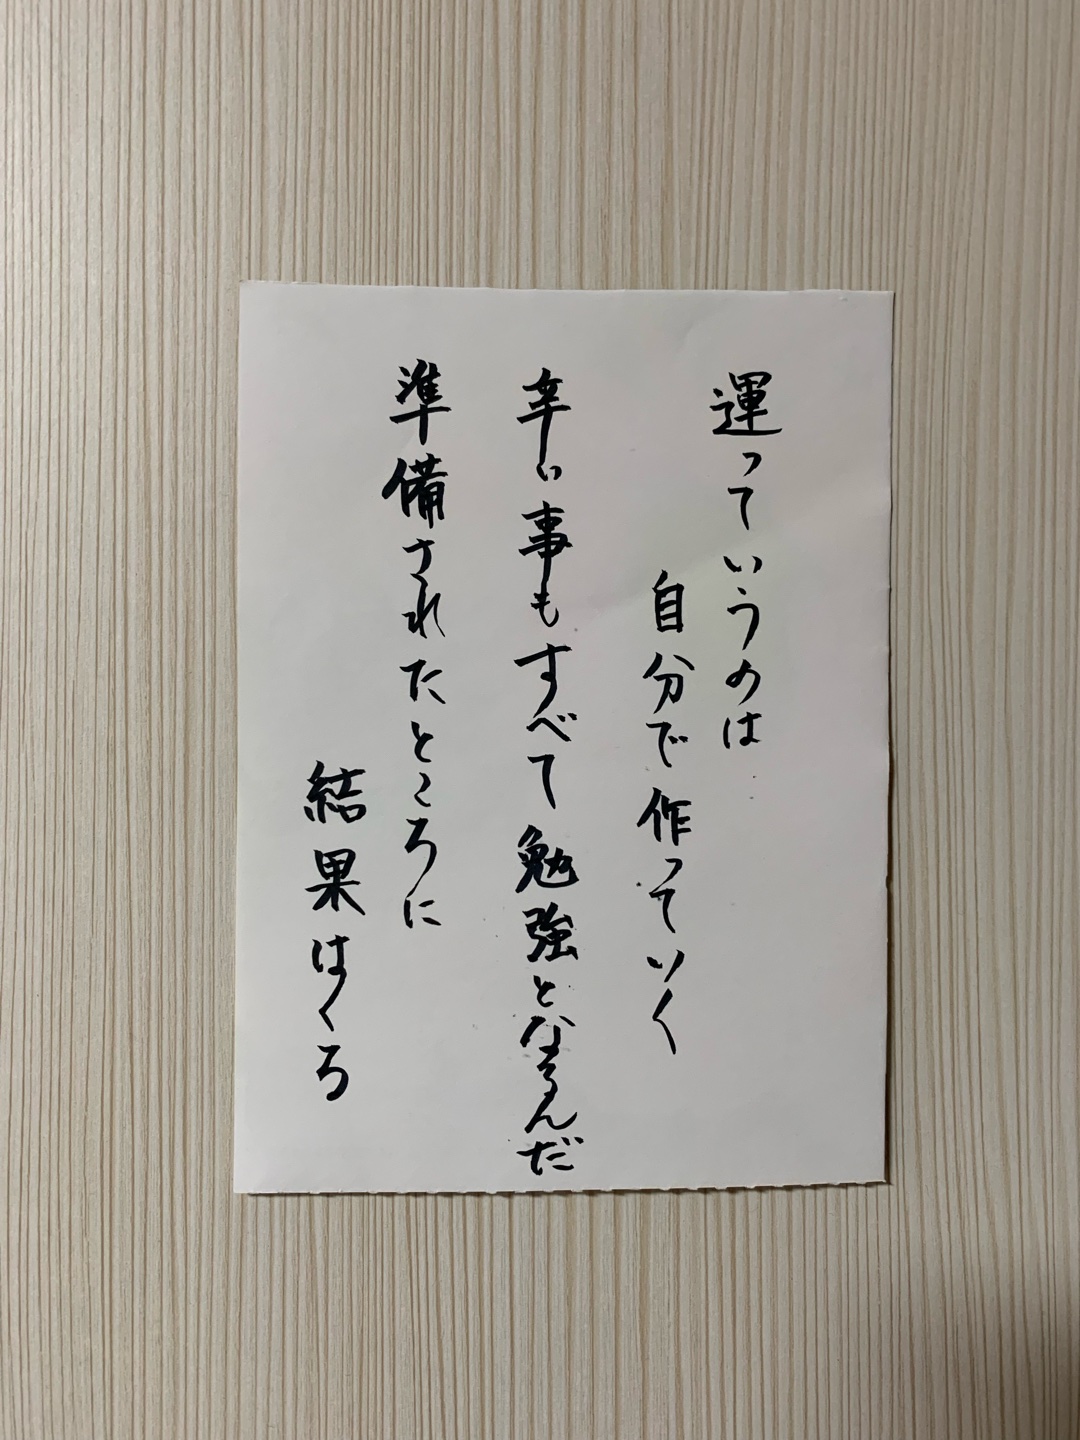 運っていうのは
自分で作っていく
辛い事もすべて勉強となるんだ
準備されたところに
結果はくる